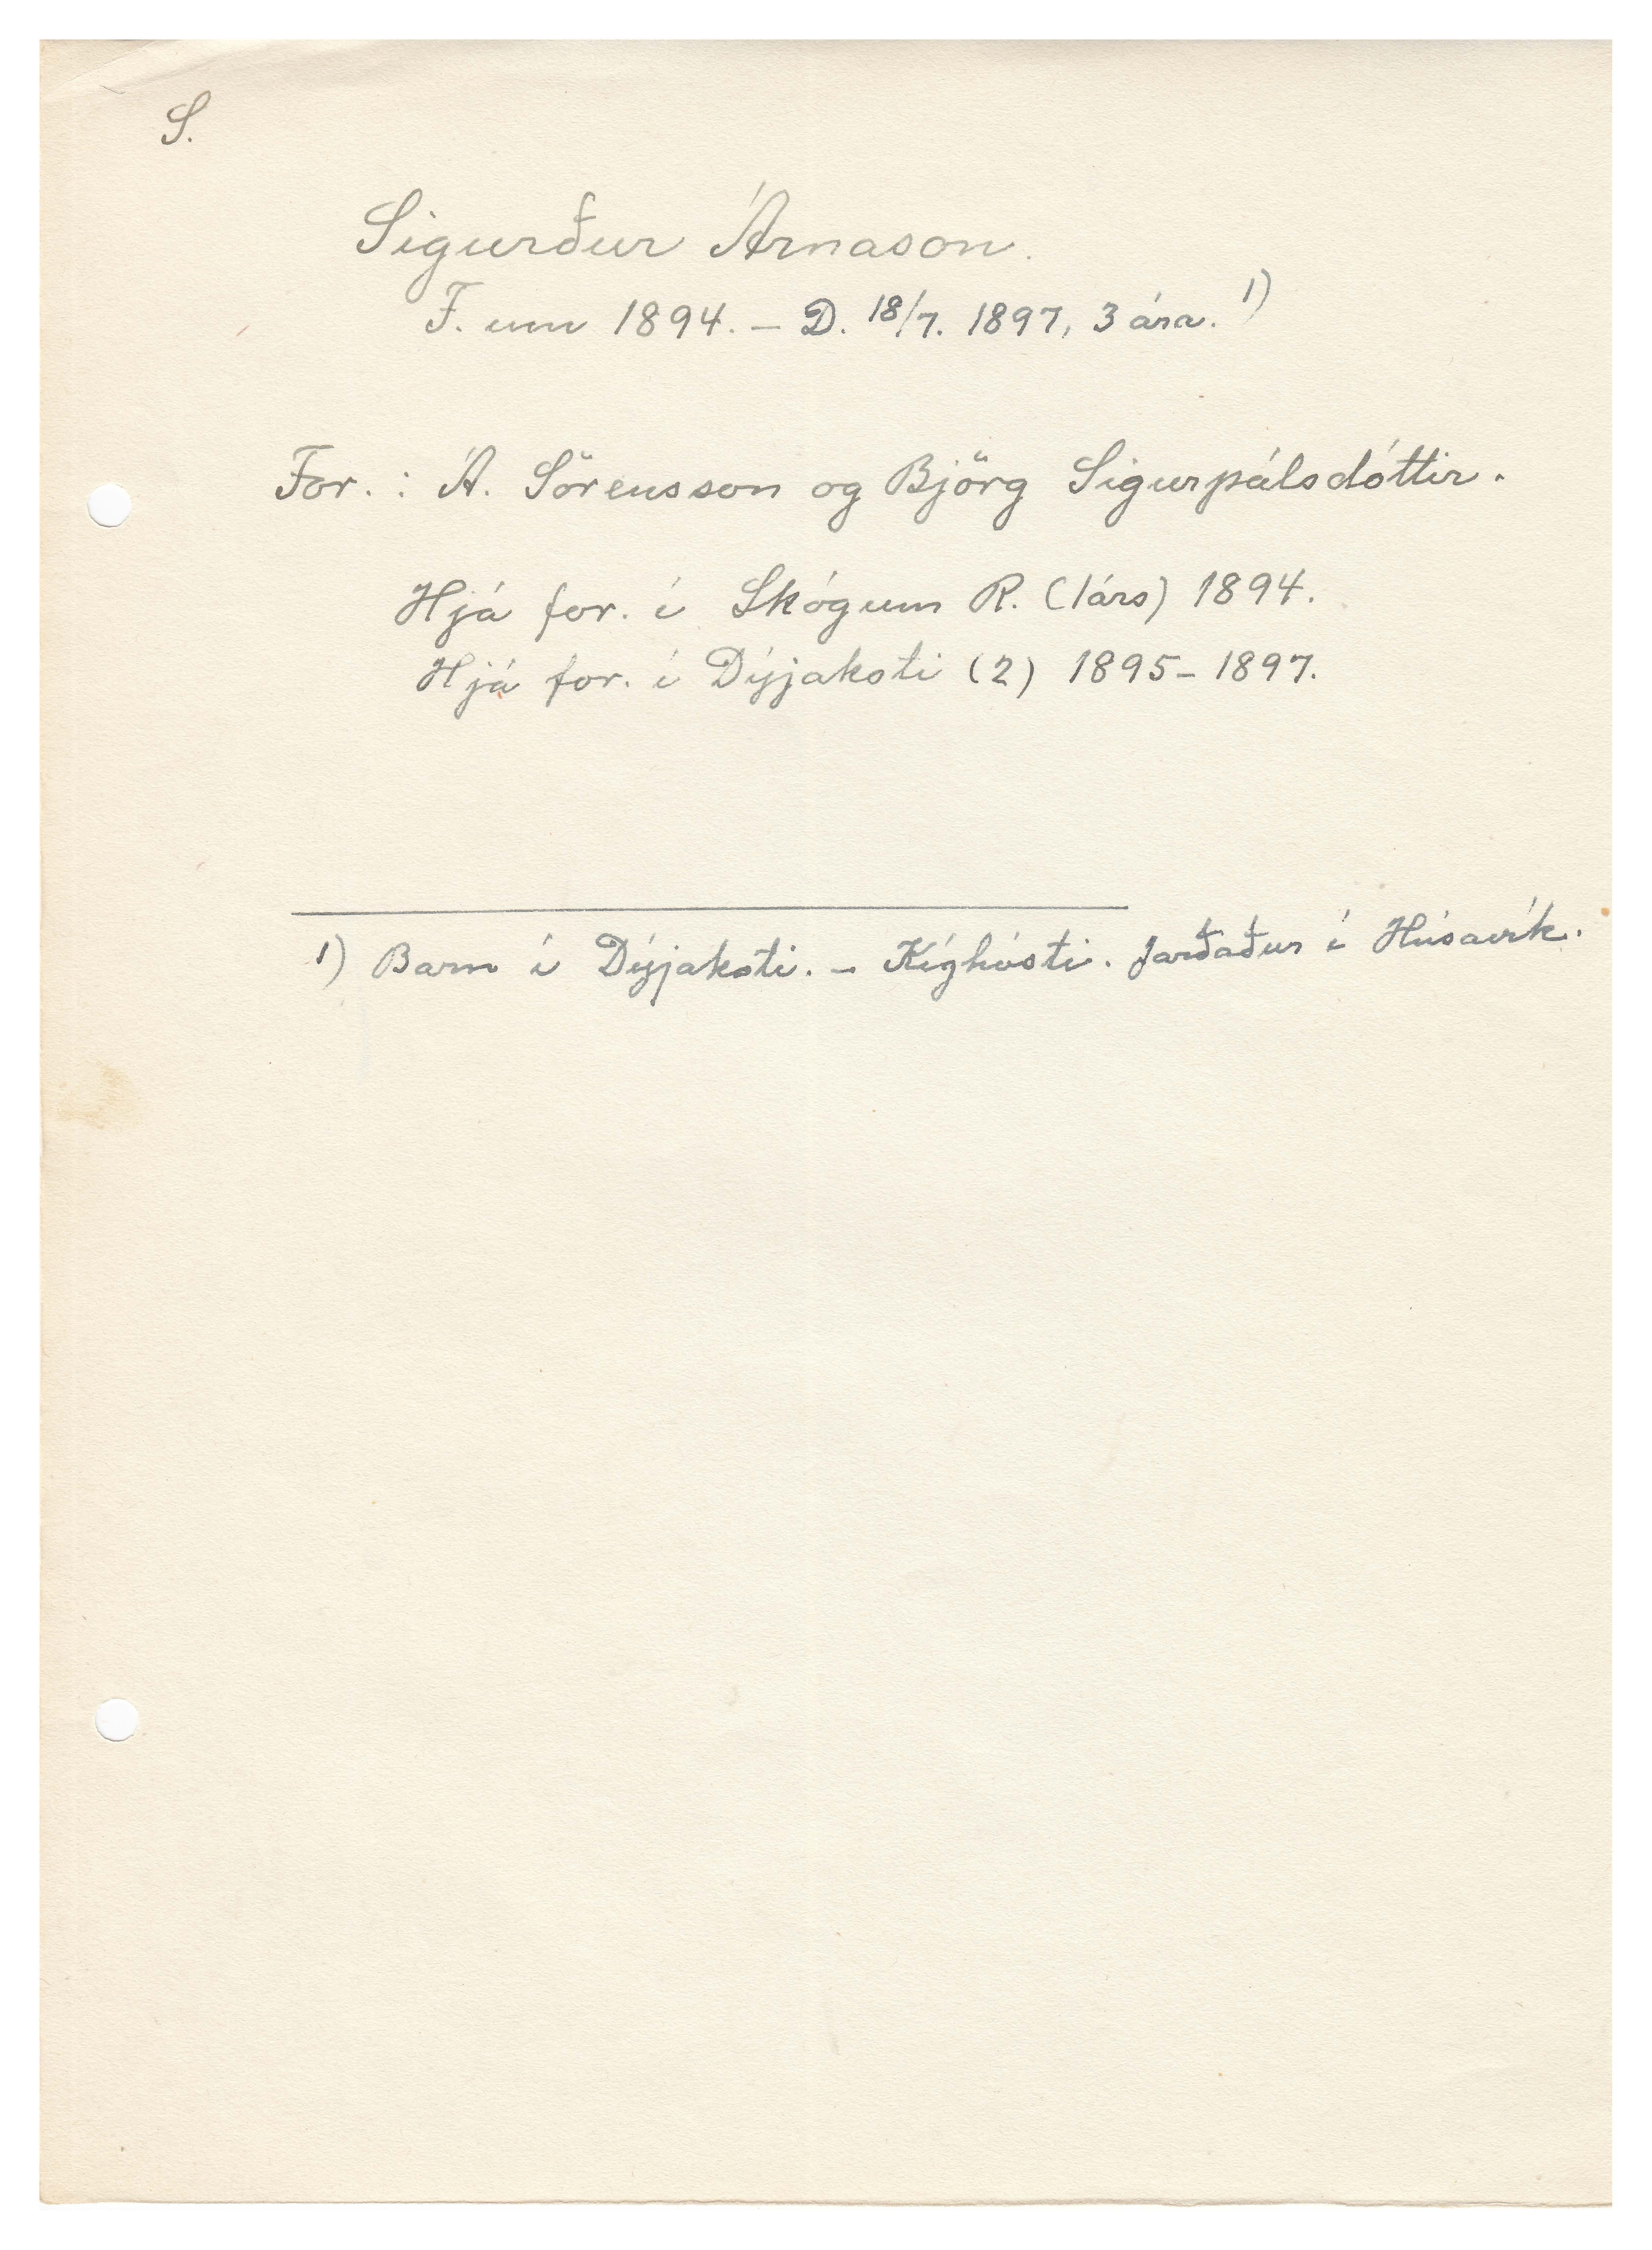 S.
Sigurður Árnason.
F. um 1894. – D. 18/7. 1897, 3 ára. 1)
For. : Á. Sörensson og Björg Sigurpálsdóttir.
Hjá for. í Skógum R. (1árs) 1894.
Hjá for. í Dýjakoti (2) 1895–1897.
1) Barn í Dýjakoti. – Kíghósti. Jarðaður í Húsavík.